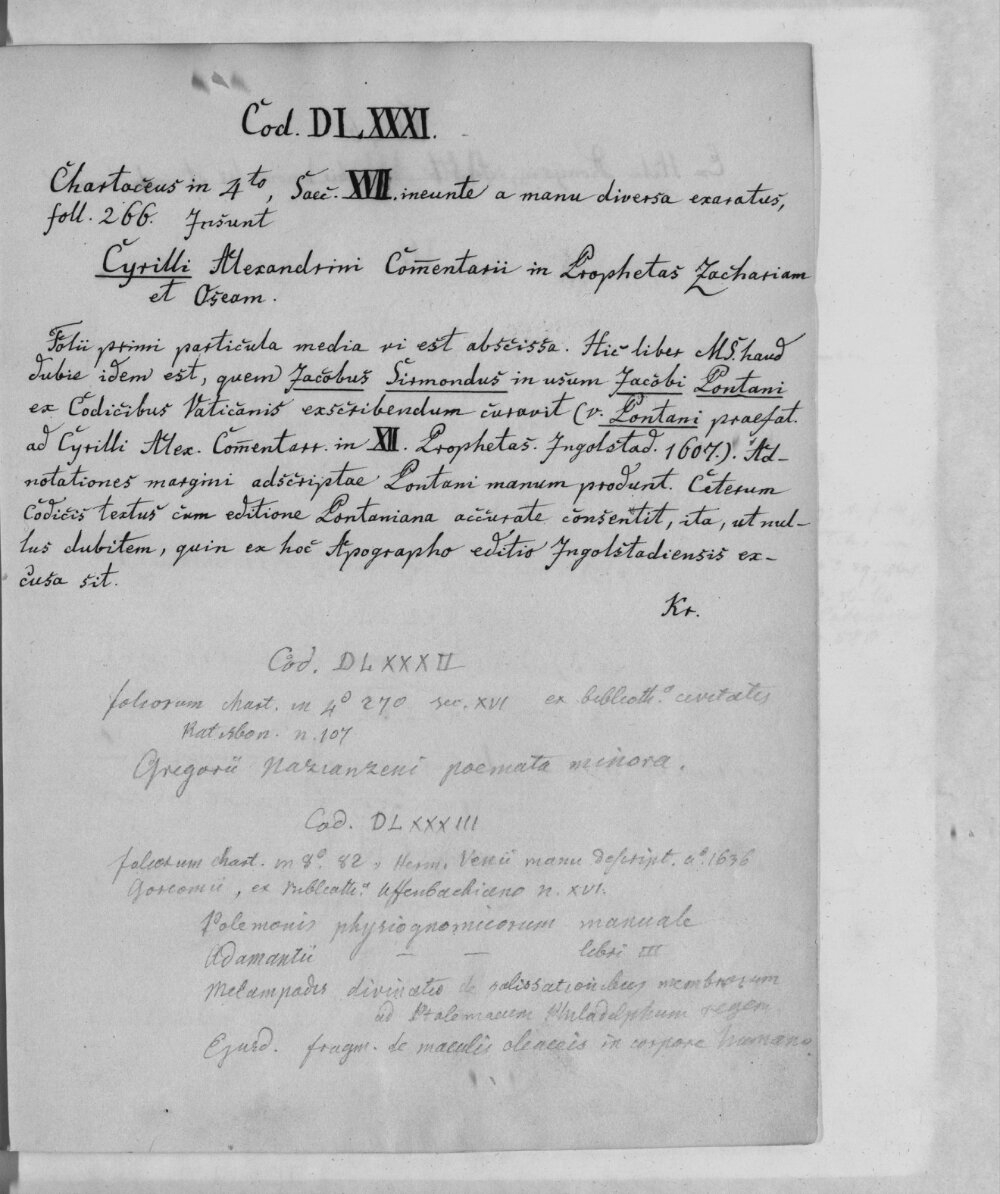 Cod. DLXXXI.
Chartaceus in 4to, Saec. XVII. ineunte a manu diversa exaratus,
foll. 266. Insunt
Cyrilli Alexandrini Com̄entarii in Prophetas Zachariam
et Oseam.
Folii primi particula media vi est abscissa. Hic liber MS. haud
dubie idem est, quem Jacobus Sirmondus in usum Jacobi Pontani
ex Codicibus Vaticanis exscribendum curavit (v. Pontani praefat.
ad Cyrilli Alex. Com̄entarr. in XII. Prophetas. Ingolstad. 1607.). Ad-
notationes margini adscriptae Pontani manum produnt. Ceterum
Codicis textus cum editione Pontaniana accurate consentit, ita, ut nul-
lus dubitem, quin ex hoc Apographo editio Ingolstadiensis ex-
cusa sit.
Kr.
Cod. DLXXXII
foliorum chart. in 4o 270 sec. XVI ex biblioth.a civitatis
Ratisbon. n. 107
Gregorii Nazianzeni poemata minora.
Cod. DLXXXIII
foliorum chart. in 8o. 82, Herm. manu descript. ao. 1636
, ex Biblioth.a Uffenbachiano n. XVI.
Polemonis physiognomicorum manuale
Adamantii — — libri III
Melampodis divinatio de salissationibus membrorum
ad Ptolemaeum Philadelphum regem
Ejusd. fragm. de maculis oleaceis in corpore humano